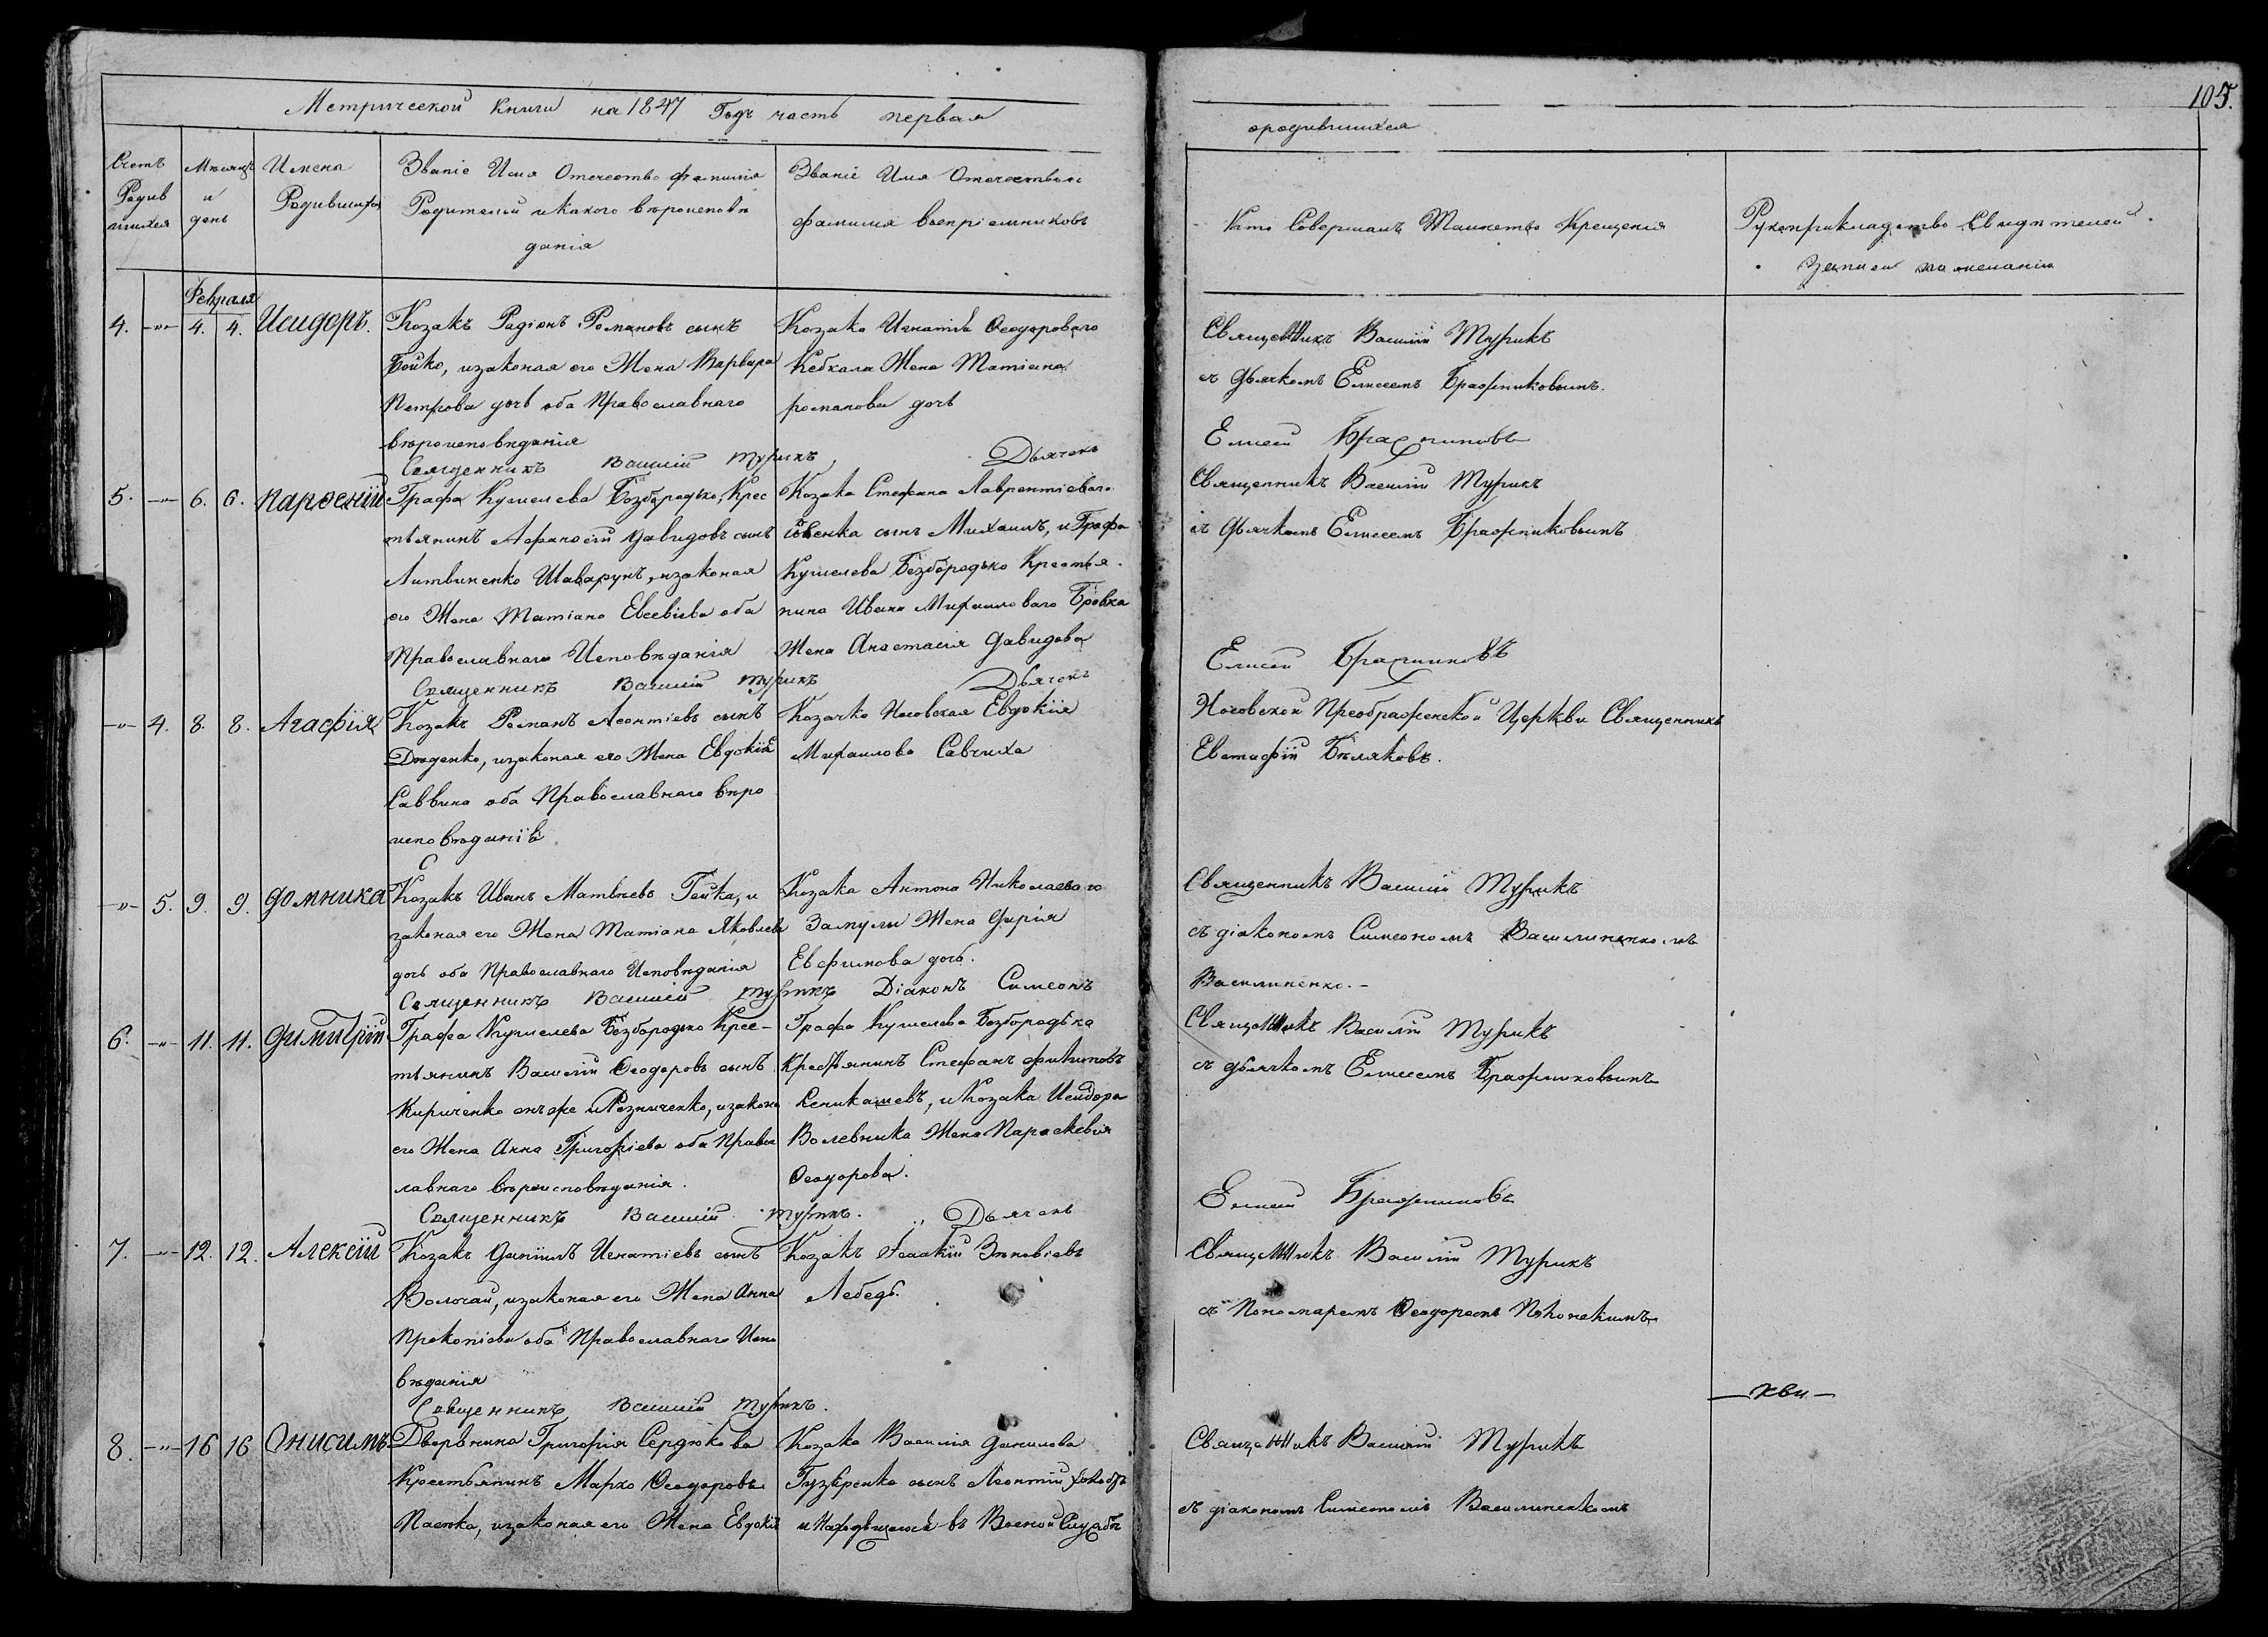 Метрической книги на 1847 Годъ часть первая
Счетъ Родившихся
Мѣсяцъ и день
Имена Родившихся
Званіе Имя Отечество фамилія
Родителей и какого вѣроисповѣ
данія
Званіе Имя Отечество и
фамилія воспріемниковъ
Февраля
4. -"- 4. 4. Исидоръ.
Козакъ Радіонъ Романовъ сынъ
Бойко, изаконая его Жена Варвара
Петрова дочь оба Православнаго
вѣроисповѣданія
Козака Игнатія Ѳеодороваго
Кебкала Жена Татіана
романова дочь
Священникъ Василій Турикъ. Дьячекъ
5. -"- 6. 6. Парѳеній
Графа Кушелева Безбородько, Крес
тьянинъ Аѳанасій Давидовъ сынъ
Литвиненко Шаварунъ, изаконая
его Жена Татіана Евсевіева оба
Православнаго Исповѣданія
Козака Стефана Лаврентіеваго
сынъ Михаилъ, и Графа
Кушелева Безбородько Крестья-
нина Ивана Михаиловаго Бровка
Жена Анастасія Давидова
Священникъ Василій Турикъ Дьячекъ
-"- 4. 8. 8. Агафія
Козакъ Романъ Леонтіевъ сынъ
Дѣденко, изаконая его Жена Евдокія
Саввина оба Православнаго вѣро
исповѣданія
Козачка Носовская Евдокія
Михаилова Савчиха
-"- 5. 9. 9. Домника
Козакъ Иванъ Матвѣевъ Гейка, и
законая его Жена Татіана Яковлева
дочь оба Православнаго Исповѣданія
Козака Антона Николаеваго
Замулы Жена Дарія
Евфимова дочь.
Священникъ Василій Турикъ Діаконъ Симеонъ
6. -"- 11. 11. Димитрій
Графа Кушелева Безбородько Крес-
тьянинъ Василій Ѳеодоровъ сынъ
Кириченко онъ же и Резниченко, изакона
его Жена Анна Григоріева оба Правос
лавнаго вѣроисповѣданія.
Графа Кушелева Безбородька
Крестьянинъ Стефанъ Филиповъ
и Козака Исидора
Жена Параскевія
Ѳеодорова.
Священникъ Василій Турикъ. Дьячекъ
7. -"- 12. 12. Алексій
Козакъ Даніилъ Игнатіевъ сынъ
Волочай, изаконая его Жена Анна
Прокопіева оба Православнаго Испо
вѣданія
Козакъ Исаакій Зѣновіевъ
Лебедь.
Священникъ Василій Турикъ.
8. -"- 16 16 Онисимъ
Дворянина Григорія Сердюкова
Крестьянинъ Марко Ѳеодоровъ
Пастка, изаконая его Жена Евдокія
Козака Василія Данилова
сынъ Леонтій
въ Военой Службѣ
105.
ородившихся
Кто Совершалъ Таинство Крещенія
Рукоприкладство Свидѣтелей
Записи по желанію
Священникъ Василій Турикъ
съ дьячкомъ Елисеемъ Бражниковымъ.
Елисей Бражниковъ
Священникъ Василій Турикъ
съ дьячкомъ Елисеемъ Бражниковымъ
Елисей Бражниковъ
Носовской Преображенской Церкви Священникъ
Евстафій Бѣляковъ.
Священникъ Василій Турикъ
съ діакономъ Симеономъ Василиненкомъ
Василиненко.-
Священникъ Василій Турикъ
съ дьячкомъ Елисеемъ Бражниковымъ
Елисей Бражниковъ
Священникъ Василій Турикъ
съ Пономаремъ Ѳеодоромъ
Священникъ Василій Турикъ
съ діакономъ Симеономъ Василиненкомъ